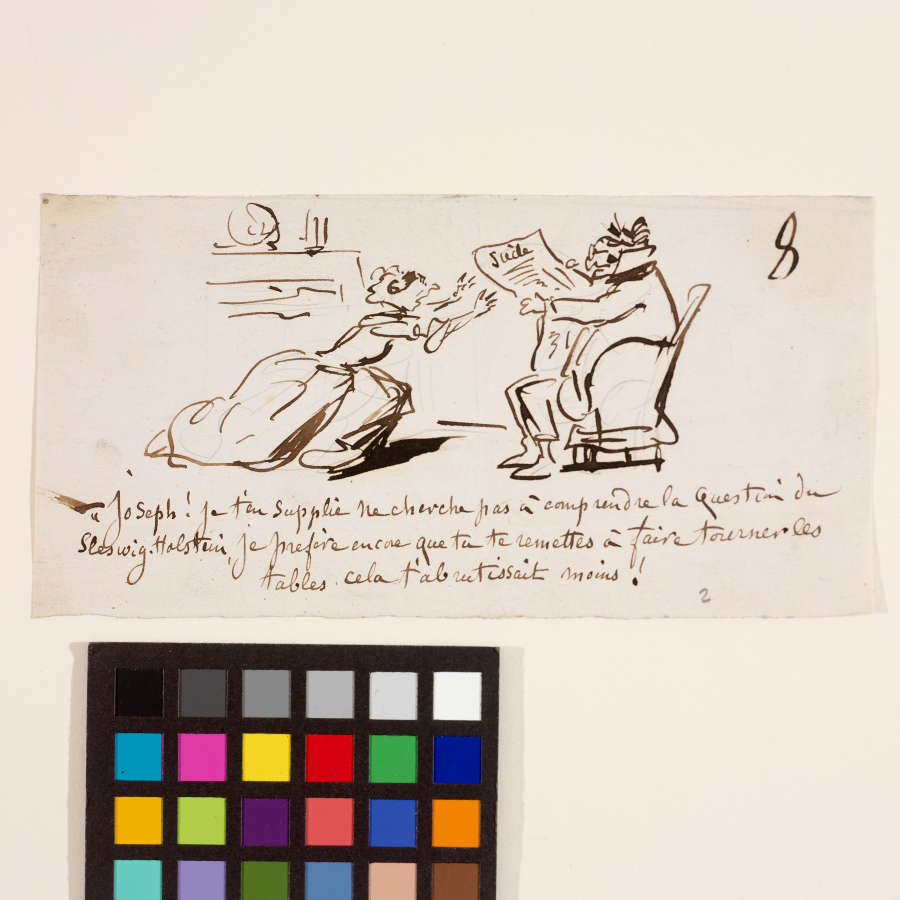 Siècle
8
" Joseph ! je t'en supplie ne cherche pas à comprendre la Question du
Sleswig-Holstein, je prefère encore que tu te remettes à faire tourner les
tables. cela t'abrutissait moins !
2